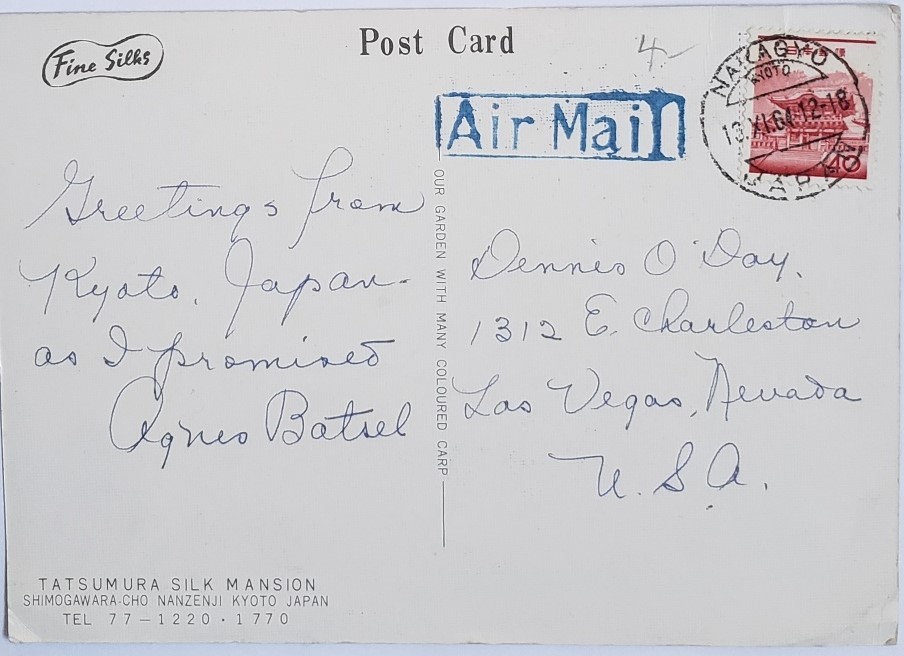 Fine Silks
Post Card
4-
Air Mail
NAKAGYO
KYOTO
13.XI.64.12-18
JAPAN
40
Greetings from
Kyoto, Japan-
as I promised
Agnes Batsel
OUR GARDEN WITH MANY COLOURED CARP
Dennis O'Day,
1312 E. Charleston
Las Vegas, Nevada
U.S.A.
TATSUMURA SILK MANSION
SHIMOGAWARA-CHO NANZENJI KYOTO JAPAN
TEL 77-1220・1770